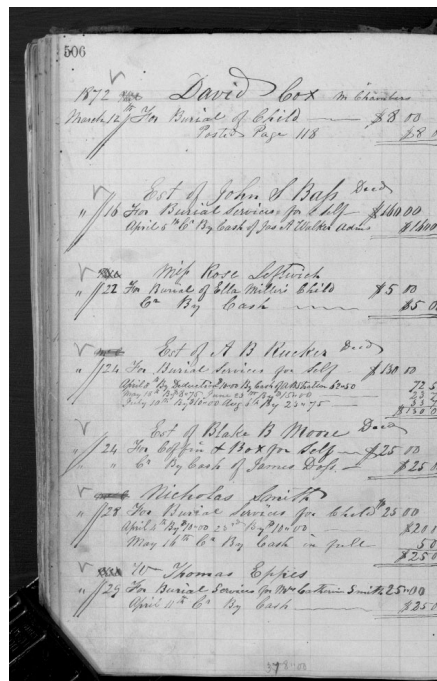 506
1872 David Cox Mr Chambers
March 12th For Burial of Child $8 00
Posted Page 118 $8 0
Est of John S Bass Decd
" 16 For Burial Services for Self $160 00
April 5th Cr By Cash of Jas A Walker Adms $160 0
Miss Rose Leftwich
" 22 For Burial of Ella Miller's Child $5 00
Cr By Cash $5 0
Est of A B Rucker Decd
" 24 For Burial Services for Self $130 00
April By Deduction By Cash 62=50 72 5
May 18=75 June 25th By $15=00 23
July 10th By $10=00 Aug 6th By 23=75 33 7
$130 0
Est of Blake B Moore Decd
" 24 For Coffin & Box for Self $25 00
" " Cr By Cash of James Doss $25 0
Nicholas Smith
" 28 For Burial Services for Child $25 00
April By $10=00 23rd By $10=00 $20 0
May 16th Cr By Cash in full 5 0
$25 0
Wm Thomas Eppes
" 29 For Burial Services for Mrs Catherine Smith 25=00
April 11th Cr By Cash $25 0